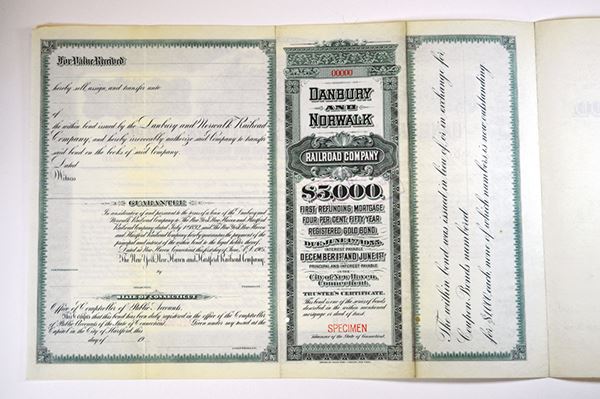 For Value Received
hereby sell, assign, and transfer unto
of
the within bond issued by the Danbury and Norwalk Railroad
Company, and hereby irrevocably authorize said Company to transfer
said bond on the books of said Company.
Dated
Witness
GUARANTEE
In consideration of and pursuant to the terms of a lease of the Danbury and
Norwalk Railroad Company to The New York, New Haven and Hartford
Railroad Company, dated July 1st 1892, said The New York, New Haven
and Hartford Railroad Company hereby guarantees the payment of the
principal and interest of the within bond to the legal holder thereof.
Dated at New Haven, Connecticut, this first day of June, 1905.
The New York, New Haven and Hartford Railroad Company,
STATE OF CONNECTICUT
Office of Comptroller of Public Accounts.
This certifies that this bond has been duly registered in the office of the Comptroller
of Public Accounts of the State of Connecticut. Given under my hand at the
Capitol in the City of Hartford, this
day of 19
00000
DANBURY
AND
NORWALK
RAILROAD COMPANY
$5,000.
FIRST REFUNDING MORTGAGE
FOUR PER CENT. FIFTY YEAR
REGISTERED GOLD BOND.
DUE JUNE 1ST 1955.
INTEREST PAYABLE
DECEMBER 1ST AND JUNE 1ST
PRINCIPAL AND INTEREST PAYABLE
IN THE
City of New Haven,
Connecticut.
TRUSTEE'S CERTIFICATE.
This bond is one of the series of bonds
described in the within mentioned
mortgage or deed of trust.
SPECIMEN
Treasurer of the State of Connecticut.
The within bond was issued in lieu of or in exchange for
Coupon Bonds numbered
for $1,000 each, none of which numbers is now outstanding